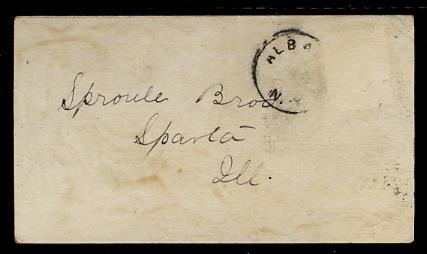 ALBA
N.Y
Sproule Bros
Sparta
Ill.